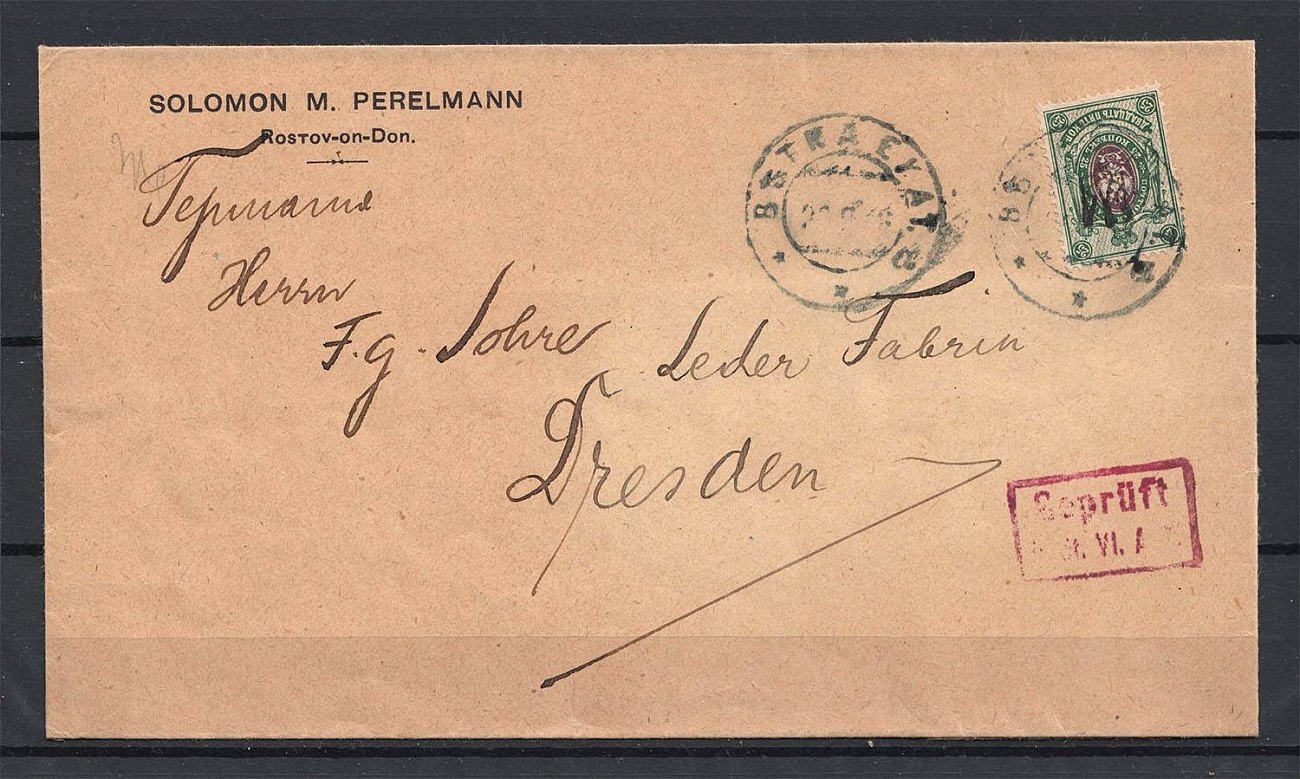 SOLOMON M. PERELMANN
Rostov-on-Don.
Германия
Herrn
F. g. Sohre Leder Fabrik
Dresden
Geprüft
St. VI. A
25
25